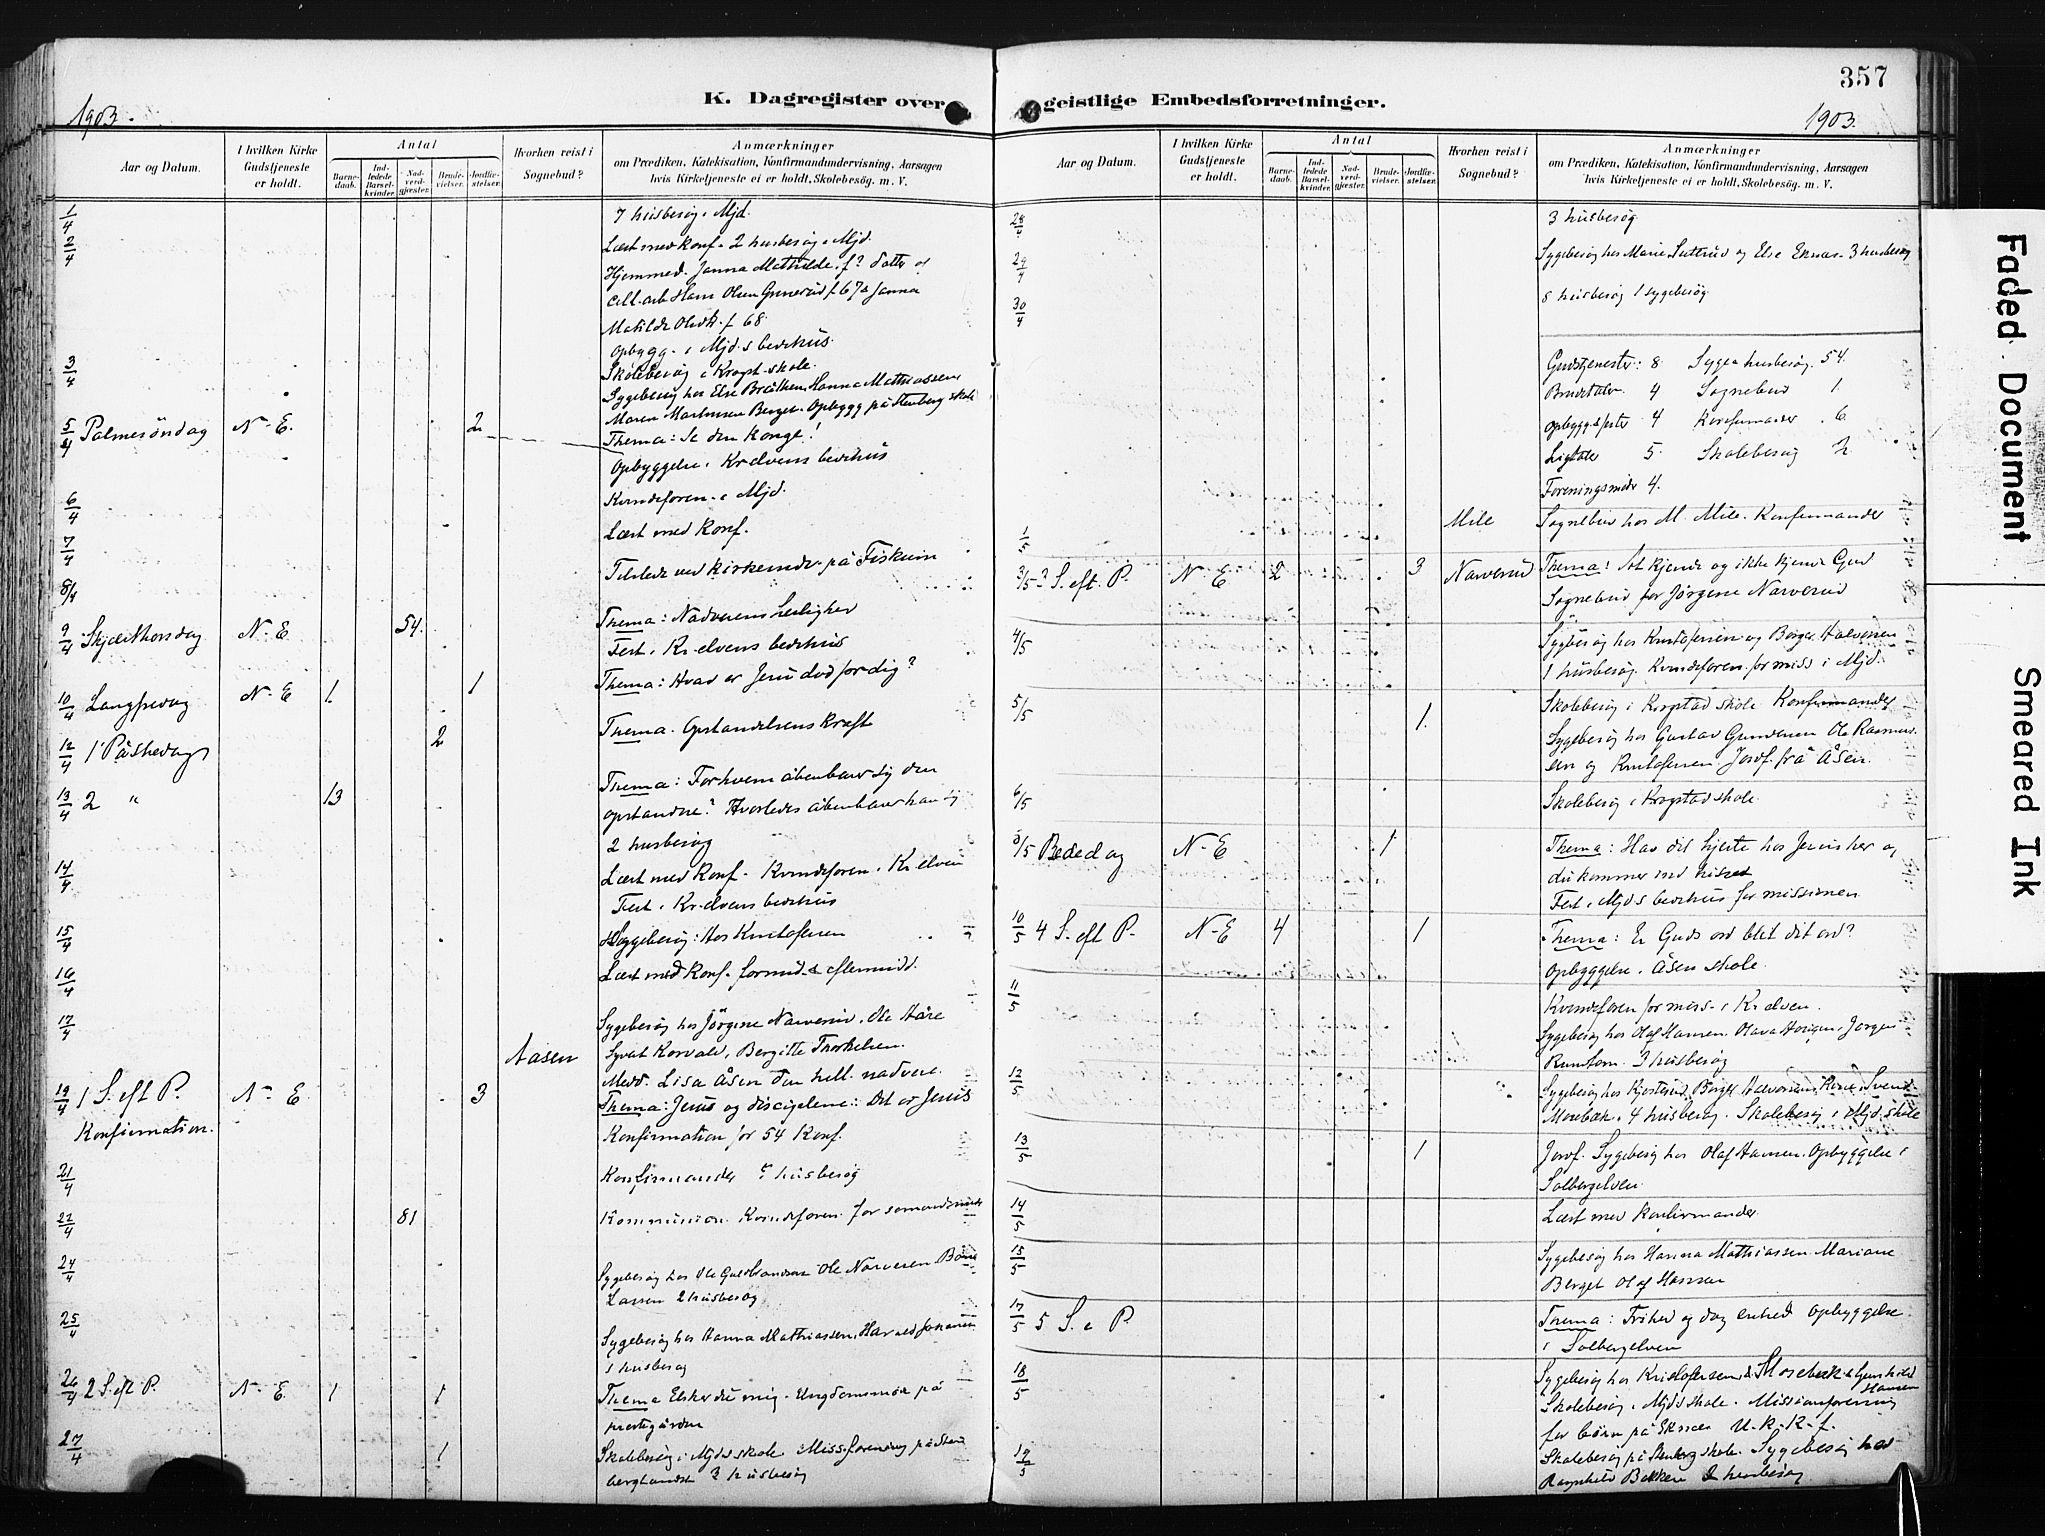 357
K. Dagregister over geistlige Embedsforretninger.
1903.
1903.
Aar og Datum.
I hvilken Kirke Gudstjeneste er holdt.
Antal
Barnedaab.
Indledede Barselkvinder.
Nadverdgjæster.
Brudevielser.
Jordfæstelser.
Hvorhen reist i Sognebud?
Anmærkninger
om Prædiken, Katekisation, Konfirmandundervisning, Aarsagen
hvis Kirketjeneste ei er holdt, Skolebesøg. m. V.
1/4 7 husbesøg i Mjd.
2/4 Læst med Konf. 2 husbesøg i Mjd.
Hjemmed. Janna Mathilde, f? datter af
Hans Olsen f. 67 & Janna
Matilde f 68.
Opbygg. i Mjd.s bedehus.
3/4 Skolebesøg i Krogst. skole.
Sygebesøg hos Else Bråthen, Hanna Mathiassen,
Maren Berget. Opbygg på Stenberg skole
5/4 Palmesöndag N. E. 2 Thema: Se den Konge!
Opbyggelse i Kr.elvens bedehus
6/4 Kvindeforen. i Mjd.
7/4 Læst med Konf.
8/4 Tilstede ved Kirkemöde på Fiskum
9/4 Skjærthorsdag N. E 54. Thema: Nadverens
Fest i Kr.elvens bedehus
10/4 Langfredag N. E 1 1 Thema: Hvad er Jesu død for dig?
12/4 1 Påskedag 2 Thema. Opstandelsens Kraft
13/4 2 " 13 Thema: For hvem åbenbarer sig den
opstandne? Hvorledes åbenbarer han sig
2 husbesøg
14/4 Læst med Konf. Kvindeforen. i Kr.elven
Fest i Kr.elvens bedehus
15/4 Sygebesøg: Hos Kristofersen
16/4 Læst med Konf. formid. & eftermidd.
17/4 Sygebesøg hos Jörgine Narverud, Ole Håre
Aasen Syvert Korvald, Bergitte Thorkelsen.
Medd. Lisa Åsen den hell. nadvere.
19/4 1 S. eft P. N. E. 3 Thema: Jesus og disciplene: Det er Jesus
Konfirmation. Konfirmation for 54 Konf.
21/4 Konfirmander husbesøg
22/4 81 Kommunion. Kvindeforen. for
24/4 Sygebesøg hos Ole Guldbrandsen Ole Narverud
Larsen 2 husbesøg
25/4 Sygebesøg hos Hanna Mathiassen, Harald Johansen
1 husbesøg
26/4 2 S. eft P. N. E. 1 1 Thema Elsker du mig. Ungdomsmöde på
prestegården
27/4 1 Skolebesøg i Mjds skole Miss.forening på
3 husbesøg
Aar og Datum.
I hvilken Kirke Gudstjeneste er holdt.
Antal
Barnedaab.
Indledede Barselkvinder.
Nadverdgjæster.
Brudevielser.
Jordfæstelser.
Hvorhen reist i Sognebud?
Anmærkninger
om Prædiken, Katekisation, Konfirmandundervisning, Aarsagen
hvis Kirketjeneste ei er holdt, Skolebesög. m. V.
28/4 3 husbesøg
29/4 Sygebesøg hos Marie og Else Eknæs. 3 husbesøg
30/4 8 husbesøg 1 sygebesøg.
Gudstjenester: 8 Syge & husbesøg. 54
Brudetaler 4 Sognebud 1
Opbygg. & fester 4 Konfirmander 6
Ligtaler 5 Skolebesøg 2
Foreningsmøder 4.
1/5 Mile Sognebud hos M. Mile. Konfirmander
3/5 3 S. eft. P. N. E 2 3 Narverud Thema: At kjende og ikke kjende Gud
Sognebud for Jörgine Narverud
4/5 Sygebesøg hos Kristofersen og Borger Halvorsen
1 husbesøg. Kvindeforen. for miss i Mjd.
5/5 1. Skolebesøg i Krogstad skole Konfirmander
Sygebesøg hos Gustav Gundersen Ole Rasmussen
og Kristofersen, Jordf. frå Åsen.
6/5 Skolebesøg i Krogstad skole
8/5 Bededag N. E 1 Thema: Hav dit hjerte hos Jesus her og
du kommer ind hisset
Fest i Mjds bedehus for missionen
10/5 4 S. eft P. N. E 4 1 Thema: Er Guds ord blet dit ord?
Opbyggelse i Åsen skole
11/5 Kvindeforen for miss. i Kr.elven.
Sygebesøg hos Olaf Hansen. Olava Horgen, Jørgen
3 husbesøg
12/5 Sygebesøg hos Borger Halvorsen,
4 husbesøg. Skolebesøg i Mjd. skole
13/5 1 Jordf. Sygebesøg hos Olaf Hansen. Opbyggelse i
Solbergelven.
14/5 Læst med Konfirmander.
15/5 Sygebesøg hos Hanna Mathiassen Mariane
Berget Olaf Hansen
17/5 5 S. e P. Thema: Frihed og dog enhed Opbyggelse
i Solbergelven
18/5 Sygebesøg hos Kristofersen, Morebæk & Gunhild
Hansen
Skolebesøg i Mjds skole. Missionsforening
for børn på Eknæs U. K. K. f.
19/5 Skolebesøg på Stenberg skole. Sygebesøg hos
Ragnhild Bakken 2 husbesøg
Faded Document
Smeared Ink